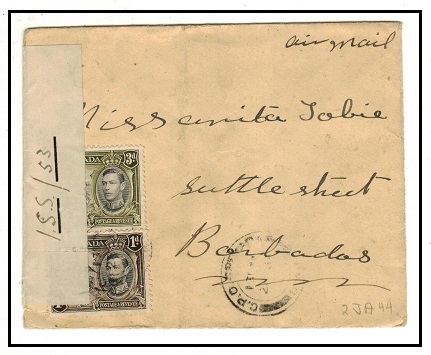 air mail
Miss anita Tobie
Suttle street
Barbados
I.S.S/53
ADA
3d
POSTAGE & REVENUE
ADA
1d
POSTAGE & REVENUE
G.P.O
2 JA 44